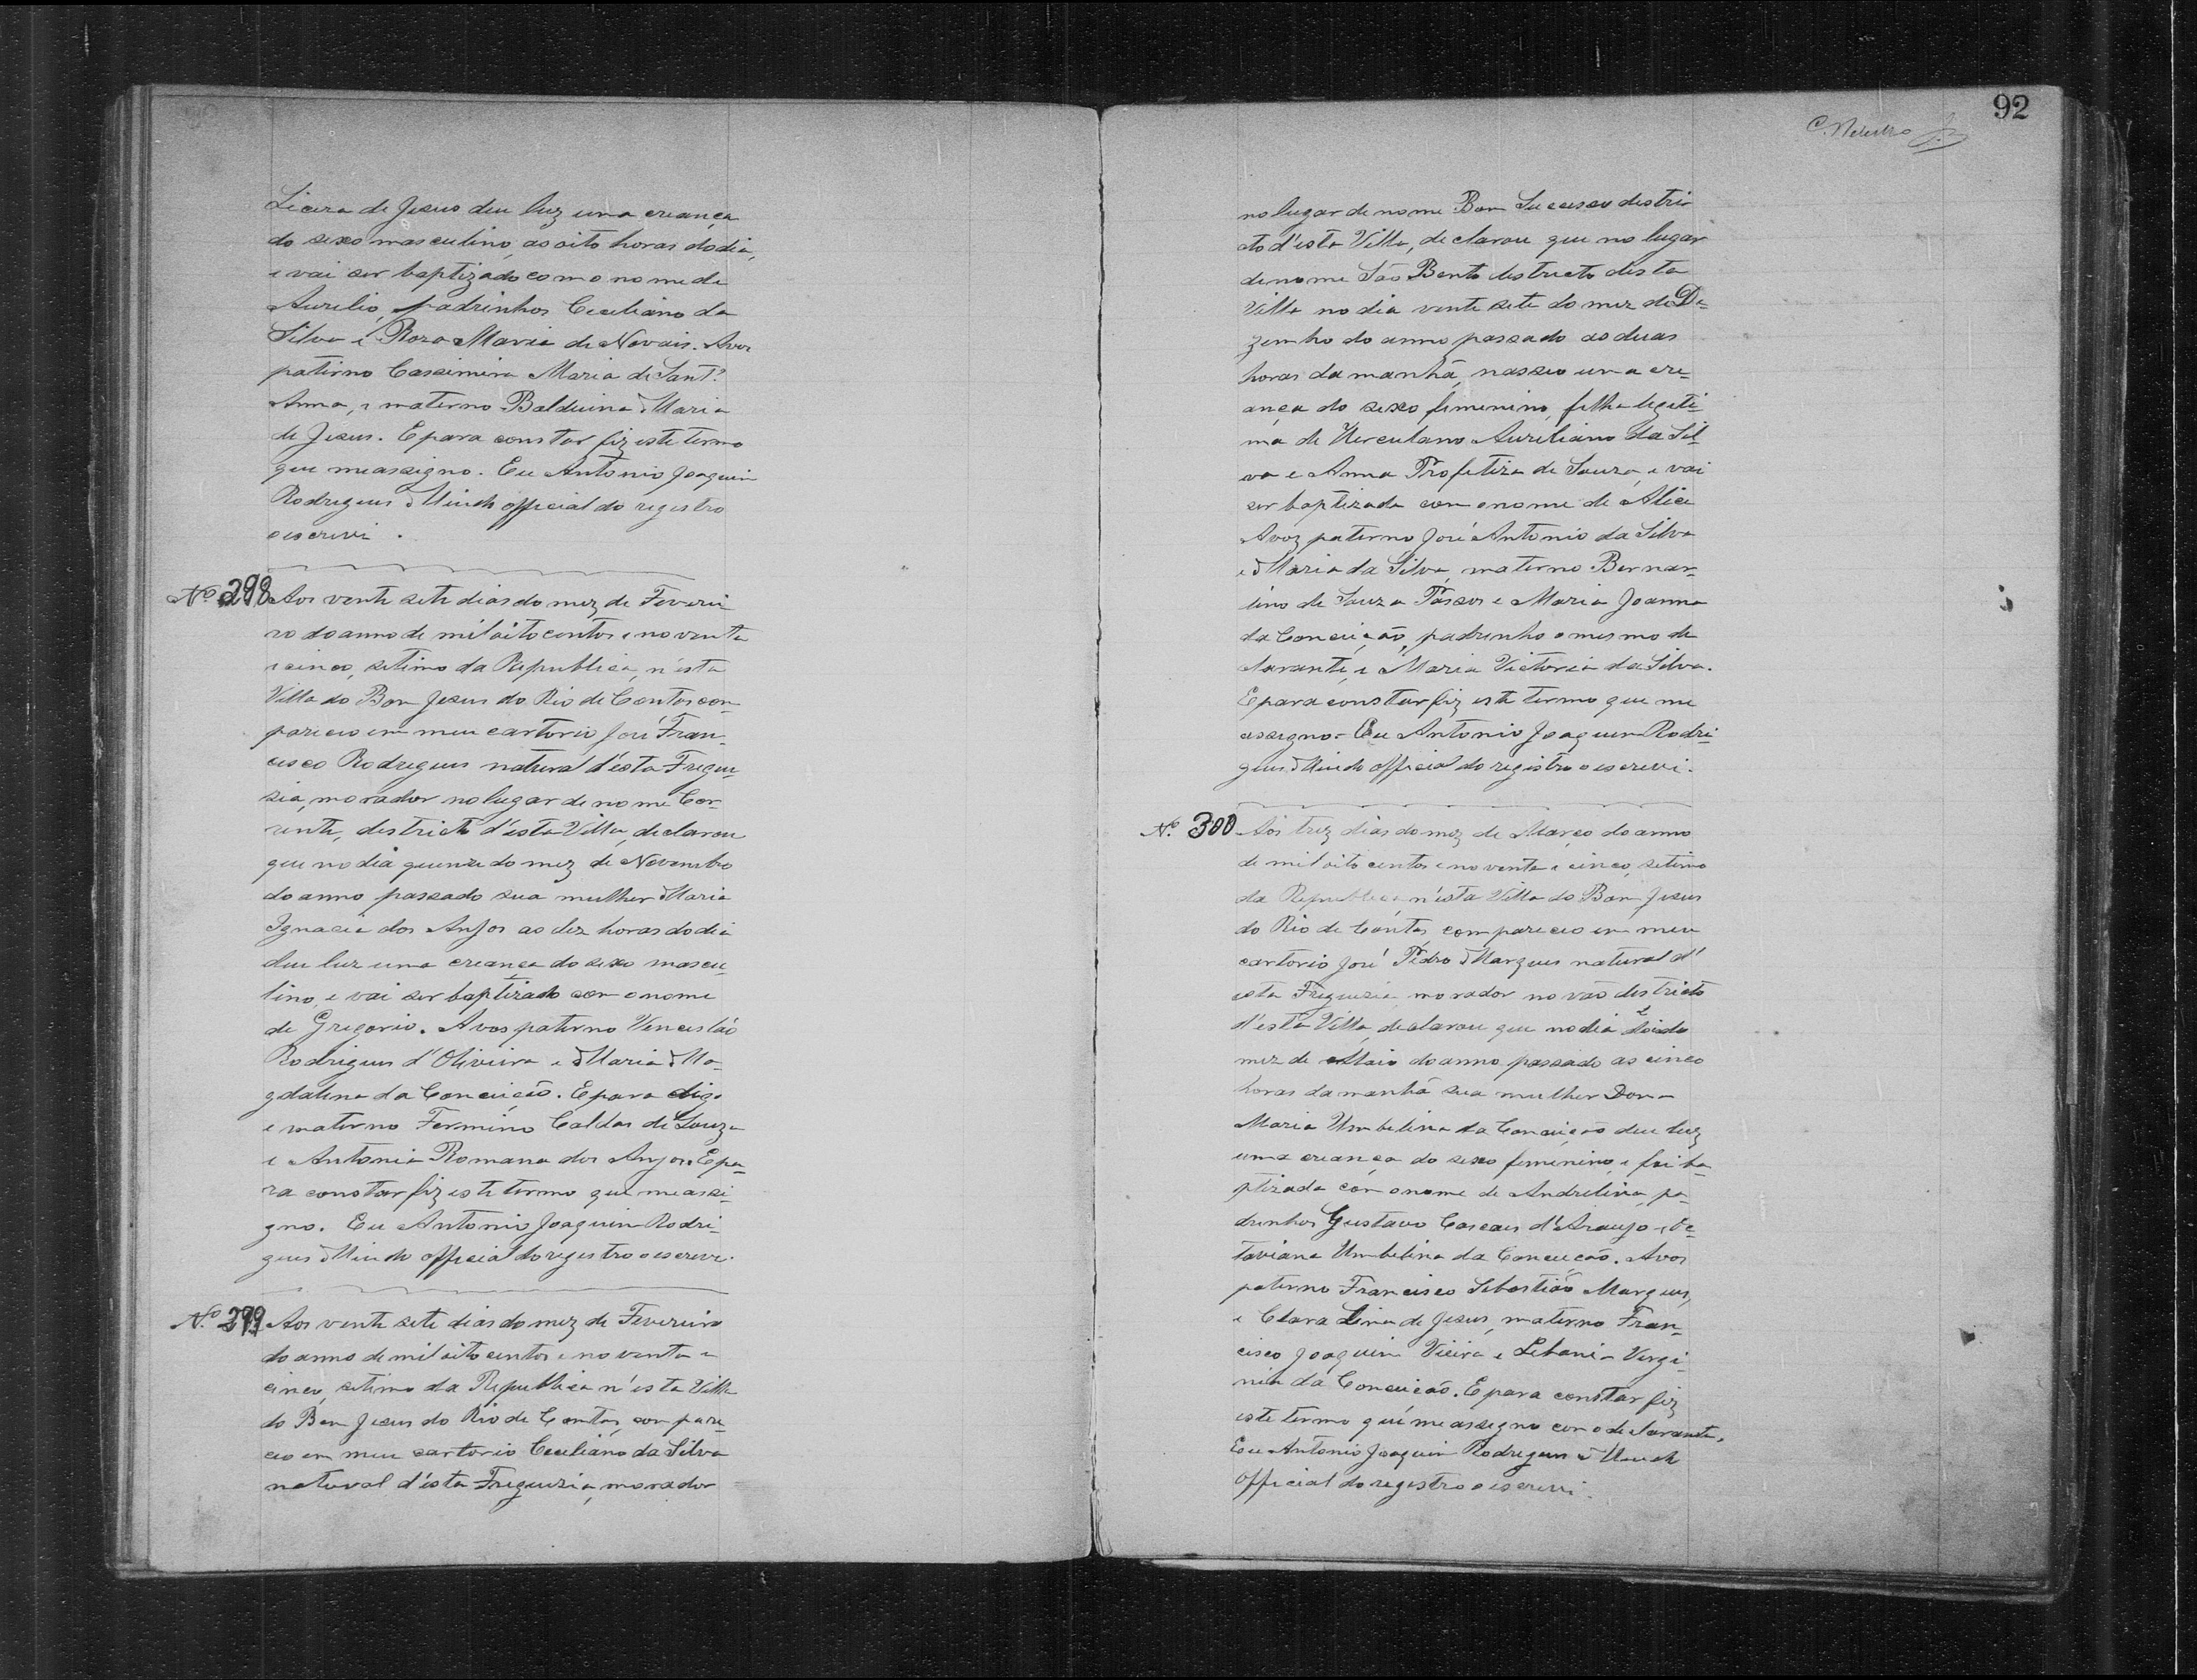 Licera de Jesus deu luz uma creança
do sexo masculino, as oito horas do dia,
e vai ser baptizado com o nome de
Aurelio, padrinhos Ceciliano da
Silva e Roza Maria de Novais. Avos
paterno Cassimira Maria de Sant'
Anna, e materno Balduina Maria
de Jesus. E para constar fiz este termo
que me assigno. Eu Antonio Joaquim
Rodrigues official do registro
o escrevi.
Nº 298 Aos vente sete dias do mez de Feverei
ro do anno de mil oito centos e noventa
e cinco, setimo da Republica, n'esta
Villa do Bom Jesus do Rio de Contas com-
pareceo em meu cartorio José Fran-
cisco Rodrigues natural d'esta Fregue
sia, morador no lugar de nome Cor-
rente, districto d'esta Villa, declarou
que no dia quenze do mez de Novembro
do anno passado sua mulher Maria
Ignacia dos Anjos as dez horas do dia
deu luz uma creança do sexo mascu-
lino, e vai ser baptizado com o nome
de Gregorio. Avos paterno Vencesláo
Rodrigues d'Oliveira e Maria Ma-
gdalena da Conceição. E para digo
e materno Fermino Caldas de Souza
e Antonia Romana dos Anjos. E pa-
ra constar fiz este termo que me assi-
gno. Eu Antonio Joaquim Rodri-
gues official do registro o escrevi.
Nº 299 Aos vente sete dias do mez de Fevereiro
do anno de mil oito centos e noventa e
cinco, setimo da Republica n'esta Villa
do Bom Jesus do Rio de Contas, compare-
ceo em meu cartorio Ceciliano da Silva
natural d'esta Freguezia, morador
92
no lugar de nome Bom Sucesso distri
cto d'esta Villa, declarou que no lugar
de nome São Bento destricto desta
Villa no dia vente sete do mez de De-
zembro do anno passado as duas
horas da manhã, nasceo uma cre-
ança do sexo femenino, filha legiti-
ma de Herculano Aureliano da Sil-
va e Anna Profetiza de Souza, e vai
ser baptizada com o nome de Alice
Avoz paterno José Antonio da Silva
e Maria da Silva, materno Bernar-
dino de Souza Passos e Maria Joanna
da Conceição, padrinho o mesmo de
clarante, e Maria Victoria da Silva.
E para constar fiz este termo que me
assigno. Eu Antonio Joaquim Rodri-
gues official do registro o escrevi.
Nº 300 Aos trez dias do mez de Março do anno
de mil oito centos e noventa e cinco, setimo
da Republica n'esta Villa do Bom Jesus
do Rio de Contas, compareceo em meu
cartorio José Pedro Marques natural d'
esta Freguezia, morador no vão destricto
d'esta Villa, declarou que no dia do
mez de Maio do anno passado as cinco
horas da manhã sua mulher Dona
Maria Umbelina da Conceição deu luz
uma creança do sexo femenino, e foi ba-
ptizada com o nome de Andrelina, pa-
drinhos Gustavo Cascais d'Araujo e Oc-
taviana Umbelina da Conceição. Avos
paterno Francisco Sebastião Marques,
e Clara Lina de Jesus, materno Fran-
cisco Joaquim Vieira e Libania Virgi-
nia da Conceição. E para constar fiz
este termo que me assigno com o declarante.
Eu Antonio Joaquim Rodrigues
official do registro o escrevi.